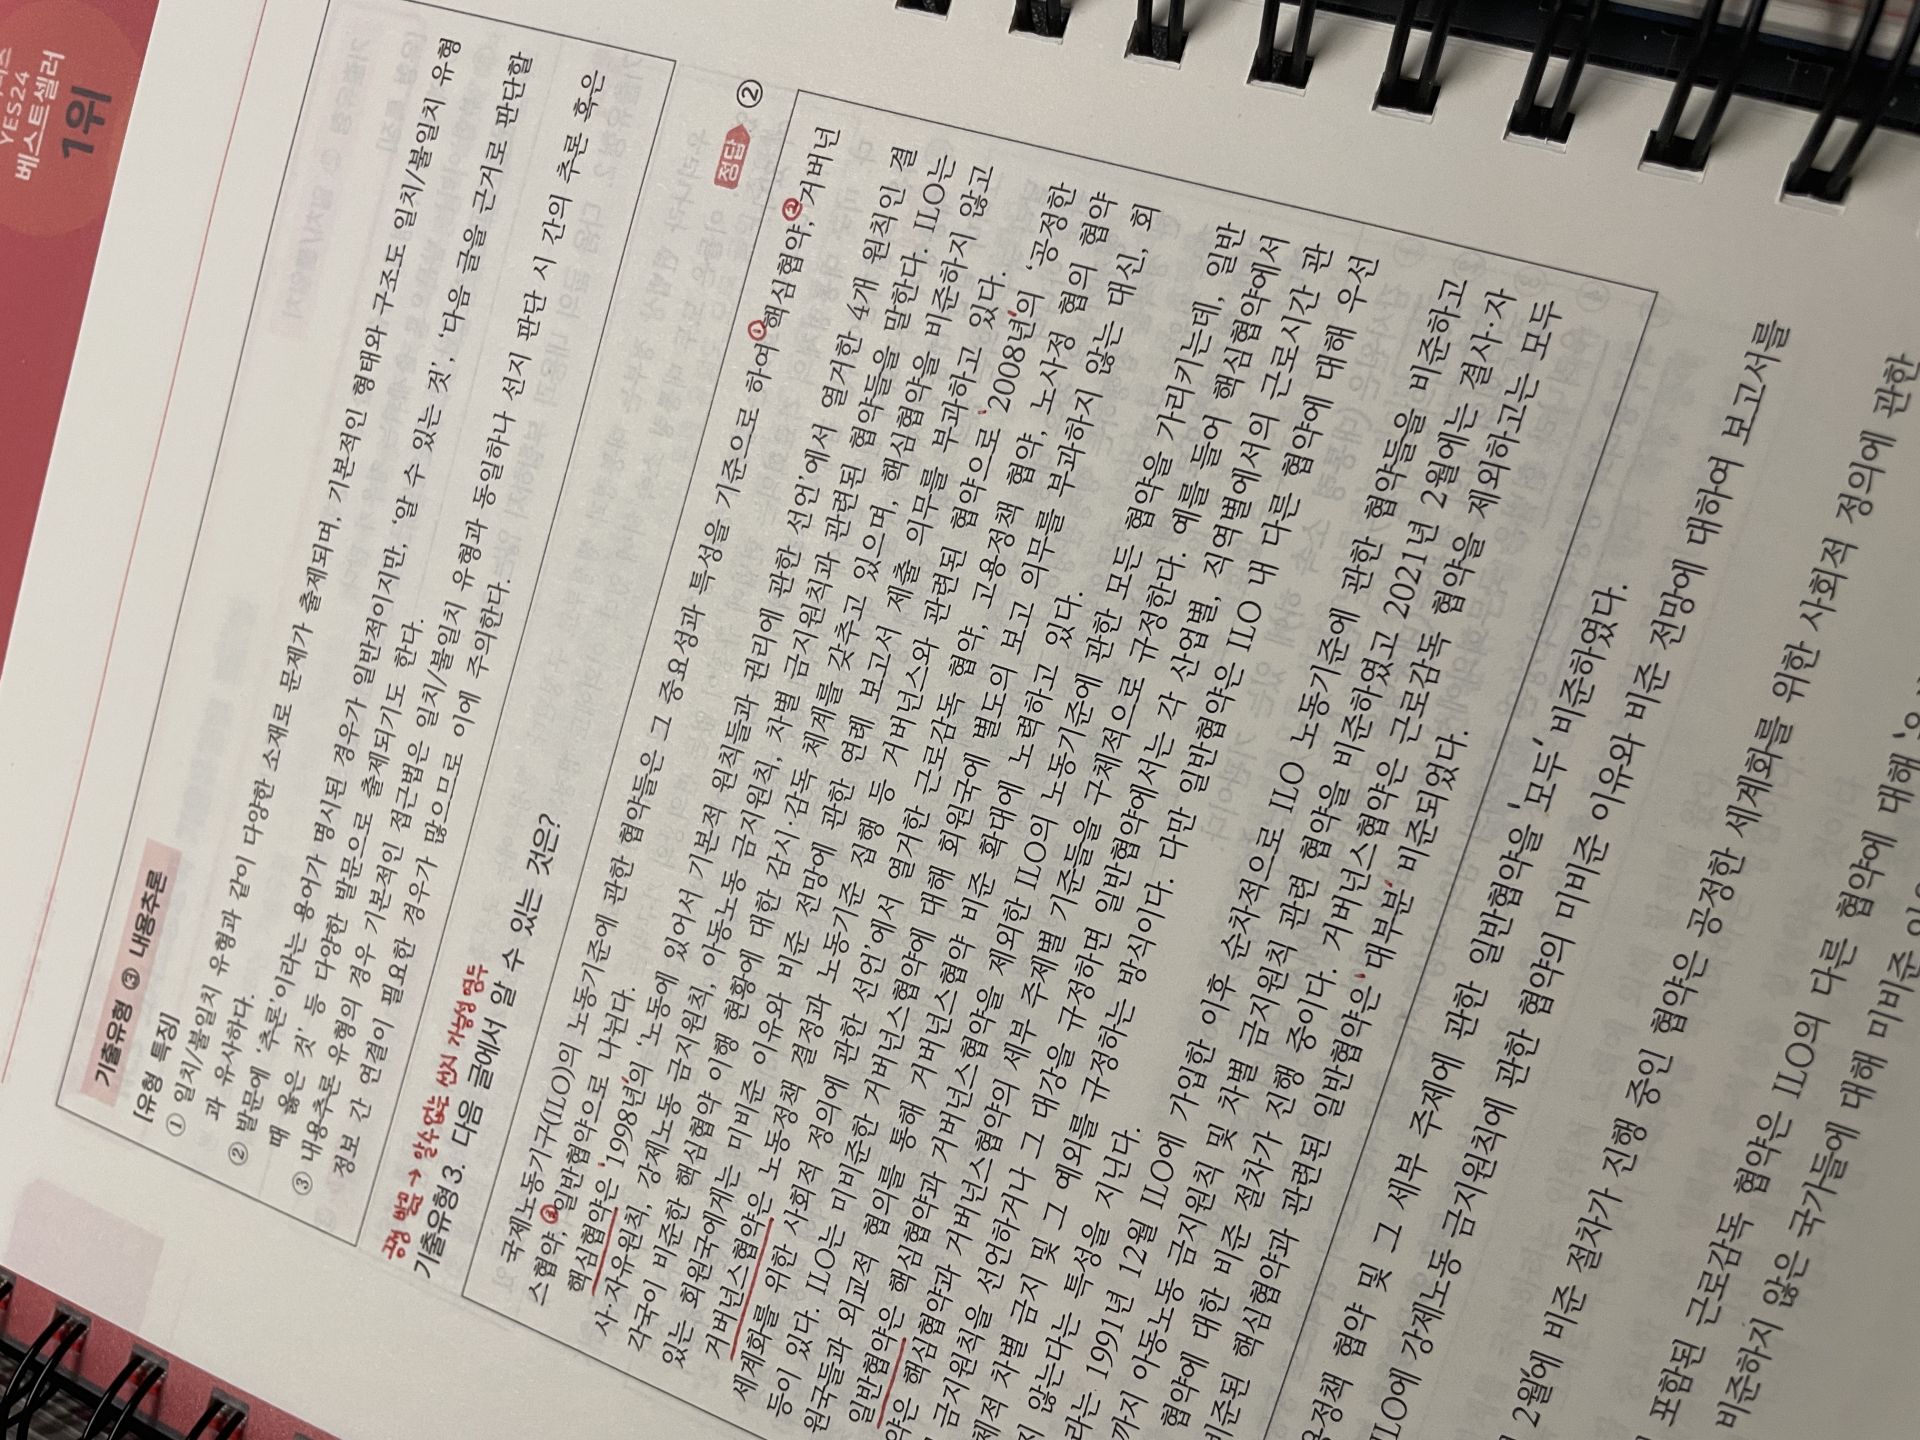 YES24
베스트셀러
1위
기출유형 ③ 내용추론
[유형 특징]
① 일치/불일치 유형과 같이 다양한 소재로 문제가 출제되며, 기본적인 형태와 구조도 일치/불일치 유형
과 유사하다.
② 발문에 ‘추론’이라는 용어가 명시된 경우가 일반적이지만, ‘알 수 있는 것’, ‘다음 글을 근거로 판단할
때 옳은 것’ 등 다양한 발문으로 출제되기도 한다.
③ 내용추론 유형의 경우 기본적인 접근법은 일치/불일치 유형과 동일하나 선지 판단 시 간의 추론 혹은
정보 간 연결이 필요한 경우가 많으므로 이에 주의한다.
긍정 발문 → 알수없는 선지 가능성 염두
기출유형 3. 다음 글에서 알 수 있는 것은?
정답 ②
국제노동기구(ILO)의 노동기준에 관한 협약들은 그 중요성과 특성을 기준으로 하여 ① 핵심협약, ② 거버넌
스협약, ③ 일반협약으로 나뉜다.
핵심협약은 1998년의 ‘노동에 있어서 기본적 원칙들과 권리에 관한 선언’에서 열거한 4개 원칙인 결
사·자유원칙, 강제노동 금지원칙, 아동노동 금지원칙, 차별 금지원칙과 관련된 협약들을 말한다. ILO는
각국이 비준한 핵심협약 이행 현황에 대한 감시·감독 체계를 갖추고 있으며, 핵심협약을 비준하지 않고
있는 회원국에게는 미비준 이유와 비준 전망에 관한 연례 보고서 제출 의무를 부과하고 있다.
거버넌스협약은 노동정책 결정과 노동기준 집행 등 거버넌스와 관련된 협약으로 2008년의 ‘공정한
세계화를 위한 사회적 정의에 관한 선언’에서 열거한 근로감독 협약, 고용정책 협약, 노사정 협의 협약
등이 있다. ILO는 미비준한 거버넌스협약에 대해 회원국에 별도의 보고 의무를 부과하지 않는 대신, 회
원국들과 외교적 협의를 통해 거버넌스협약 비준 확대에 노력하고 있다.
일반협약은 핵심협약과 거버넌스협약을 제외한 ILO의 노동기준에 관한 모든 협약을 가리키는데, 일반
약은 핵심협약과 거버넌스협약의 세부 주제별 기준들을 구체적으로 규정한다. 예를 들어 핵심협약에서
금지원칙을 선언하거나 그 대강을 규정하면 일반협약에서는 각 산업별, 직역별에서의 근로시간 관
체적 차별 금지 및 그 예외를 규정하는 방식이다. 다만 일반협약은 ILO 내 다른 협약에 대해 우선
지 않는다는 특성을 지닌다.
라는 1991년 12월 ILO에 가입한 이후 순차적으로 ILO 노동기준에 관한 협약들을 비준하고
까지 아동노동 금지원칙 및 차별 금지원칙 관련 협약을 비준하였고 2021년 2월에는 결사·자
협약에 대한 비준 절차가 진행 중이다. 거버넌스협약은 근로감독 협약을 제외하고는 모두
비준된 핵심협약과 관련된 일반협약은 대부분 비준되었다.
용정책 협약 및 그 세부 주제에 관한 일반협약을 모두 비준하였다.
ILO에 강제노동 금지원칙에 관한 협약의 미비준 이유와 비준 전망에 대하여 보고서를
2월에 비준 절차가 진행 중인 협약은 공정한 세계화를 위한 사회적 정의에 관한
포함된 근로감독 협약은 ILO의 다른 협약에 대해
비준하지 않은 국가들에 대해 미비준